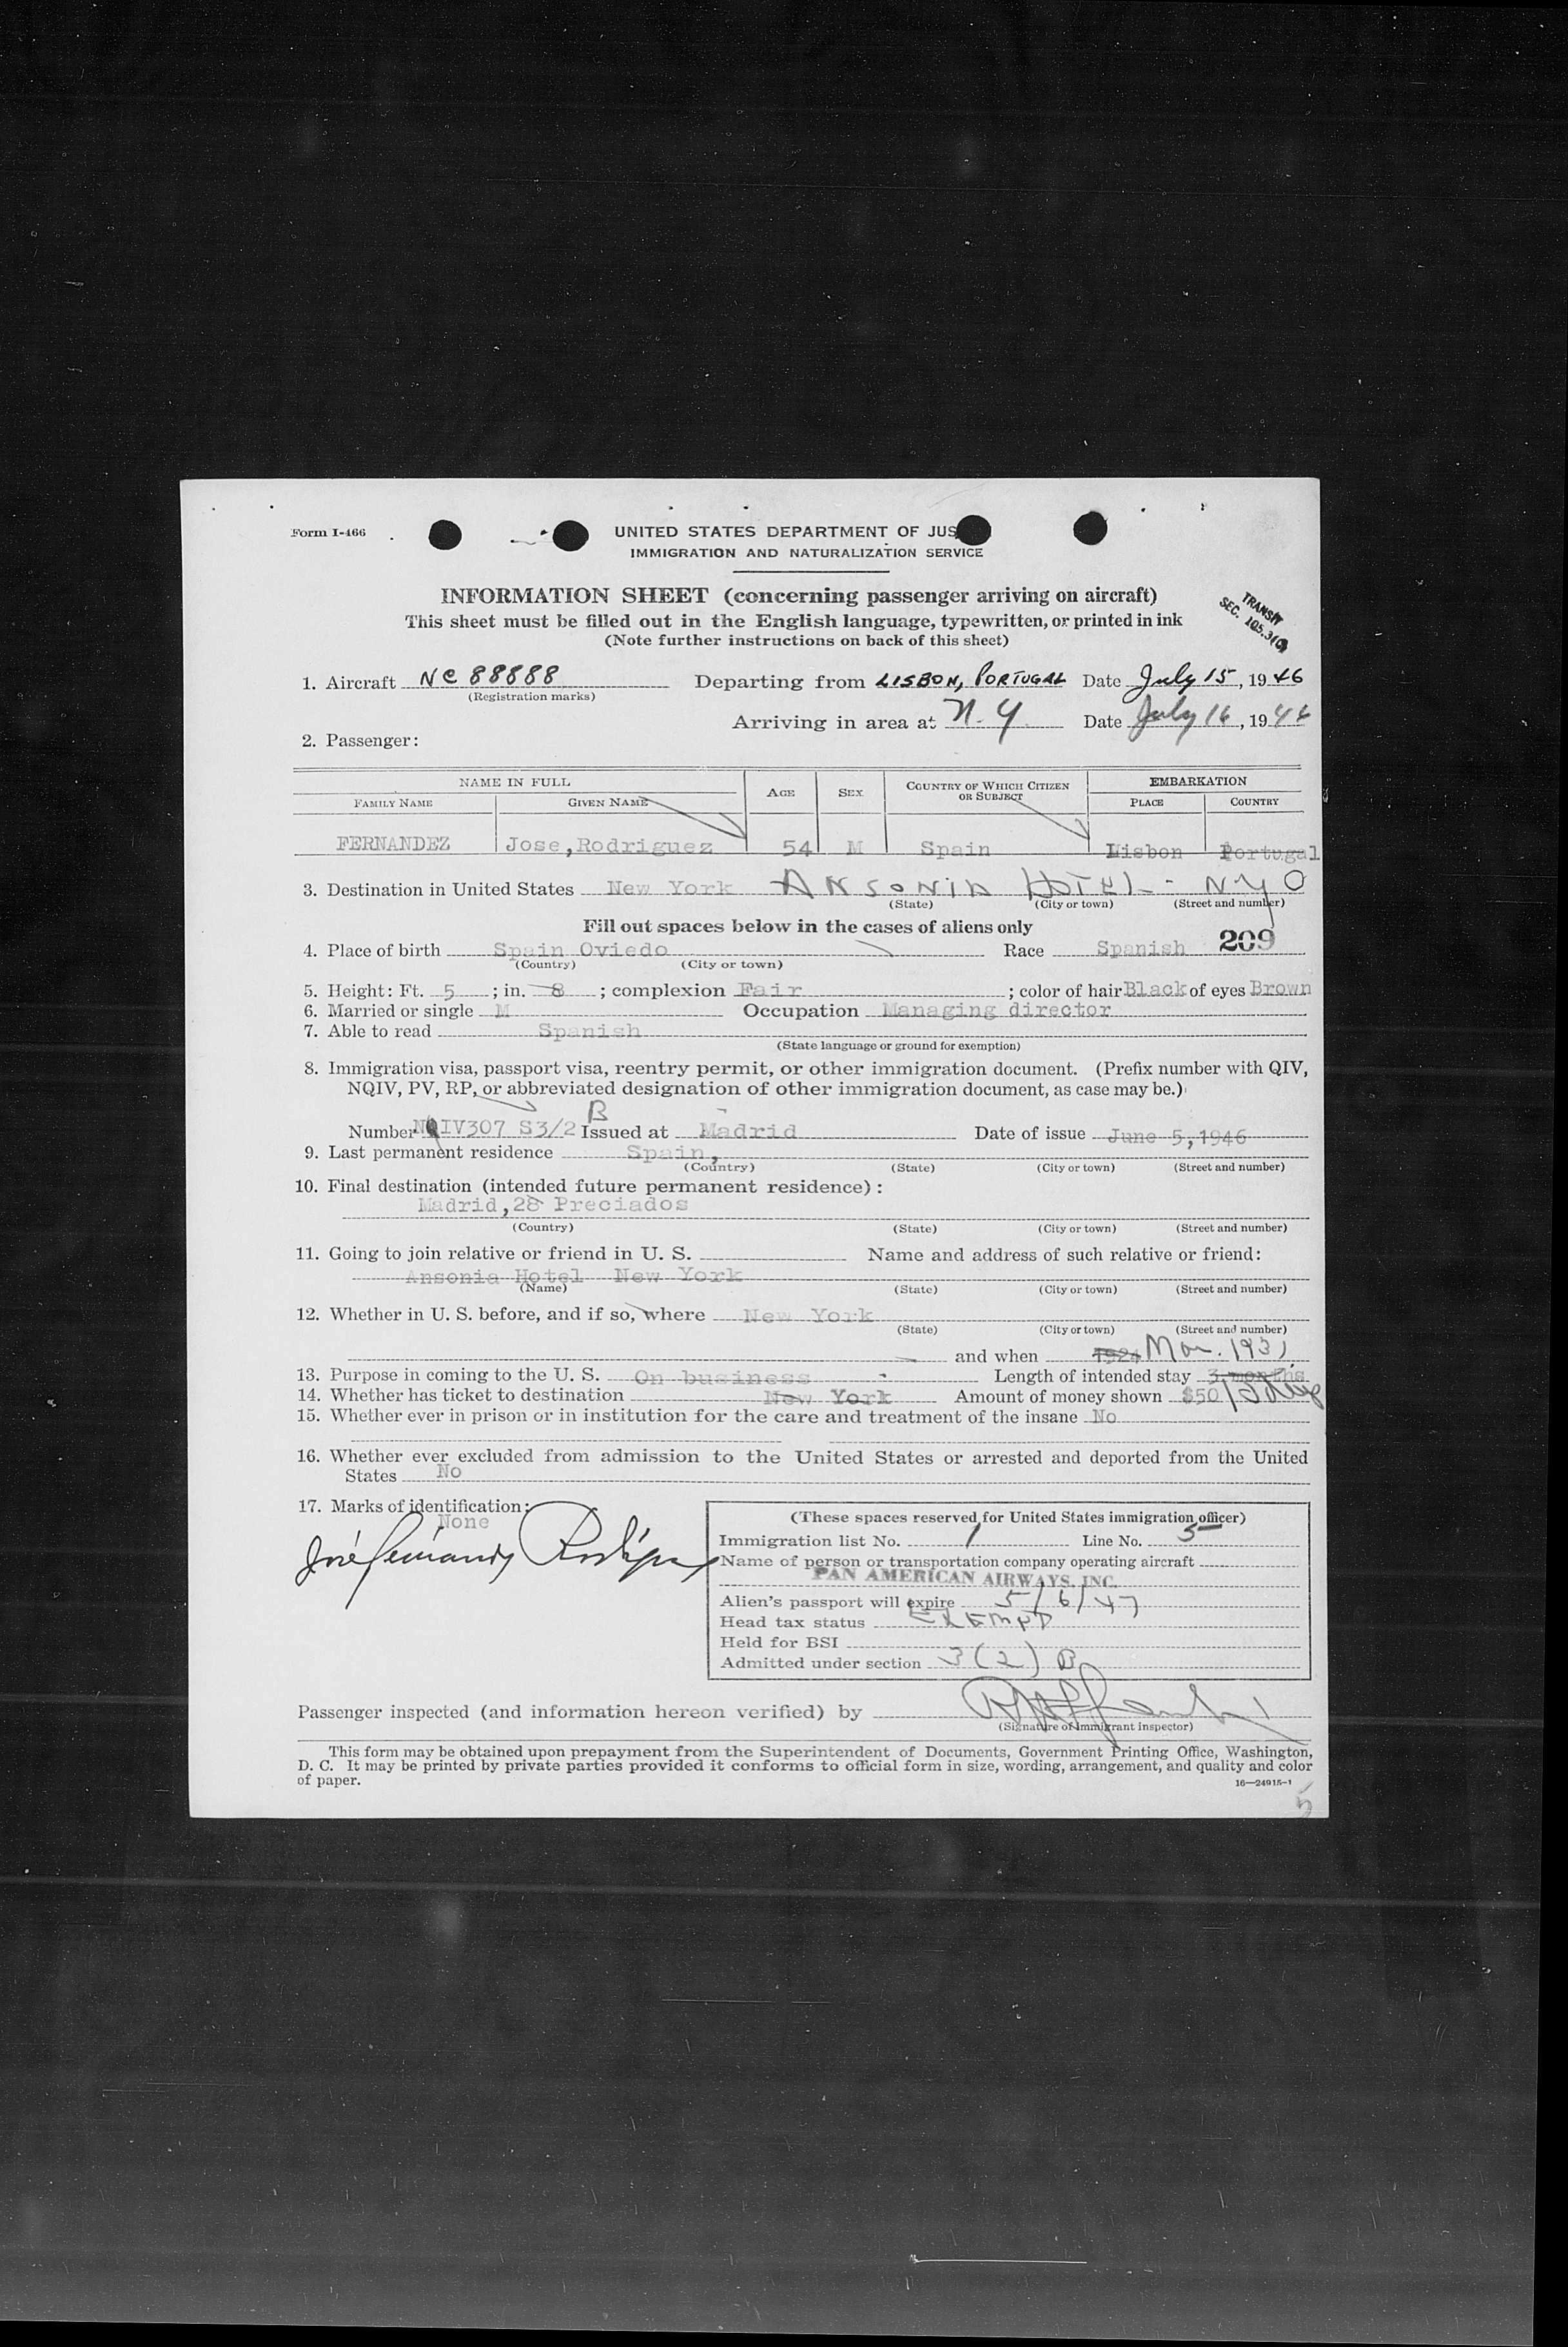 Form I-466
UNITED STATES DEPARTMENT OF JUS
IMMIGRATION AND NATURALIZATION SERVICE
INFORMATION SHEET (concerning passenger arriving on aircraft)
This sheet must be filled out in the English language, typewritten, or printed in ink
(Note further instructions on back of this sheet)
TRANSIT
SEC. 105.3(C)
1. Aircraft NC 88888 Departing from LISBON, PORTUGAL Date July 15, 1946
(Registration marks)
Arriving in area at N.Y. Date July 16, 1946
2. Passenger:
NAME IN FULL AGE SEX COUNTRY OF WHICH CITIZEN OR SUBJECT EMBARKATION
FAMILY NAME GIVEN NAME PLACE COUNTRY
FERNANDEZ Jose, Rodriguez 54 M Spain Lisbon Portugal
3. Destination in United States New York ANSONIA HOTEL - NYC
(State) (City or town) (Street and number)
Fill out spaces below in the cases of aliens only
4. Place of birth Spain Oviedo Race Spanish 209
(Country) (City or town)
5. Height: Ft. 5; in. 8; complexion Fair; color of hair Black of eyes Brown
6. Married or single M Occupation Managing director
7. Able to read Spanish
(State language or ground for exemption)
8. Immigration visa, passport visa, reentry permit, or other immigration document. (Prefix number with QIV,
NQIV, PV, RP, or abbreviated designation of other immigration document, as case may be.)
Number NQIV307 S3/2 B Issued at Madrid Date of issue June 5, 1946
9. Last permanent residence Spain,
(Country) (State) (City or town) (Street and number)
10. Final destination (intended future permanent residence):
Madrid, 28 Preciados
(Country) (State) (City or town) (Street and number)
11. Going to join relative or friend in U. S. Name and address of such relative or friend:
Ansonia Hotel New York
(Name) (State) (City or town) (Street and number)
12. Whether in U. S. before, and if so, where New York
(State) (City or town) (Street and number)
and when 1924 Mar. 1931
13. Purpose in coming to the U. S. On business Length of intended stay 3 months
14. Whether has ticket to destination New York Amount of money shown $50
15. Whether ever in prison or in institution for the care and treatment of the insane No
16. Whether ever excluded from admission to the United States or arrested and deported from the United
States No
17. Marks of identification:
None
José Fernandez Rodriguez
(These spaces reserved for United States immigration officer)
Immigration list No. 1 Line No. 5
Name of person or transportation company operating aircraft
PAN AMERICAN AIRWAYS, INC.
Alien's passport will expire 5/6/47
Head tax status EXEMPT
Held for BSI
Admitted under section 3(2) B
Passenger inspected (and information hereon verified) by
(Signature of Immigrant Inspector)
This form may be obtained upon prepayment from the Superintendent of Documents, Government Printing Office, Washington,
D. C. It may be printed by private parties provided it conforms to official form in size, wording, arrangement, and quality and color
of paper.
16—24915-1
5